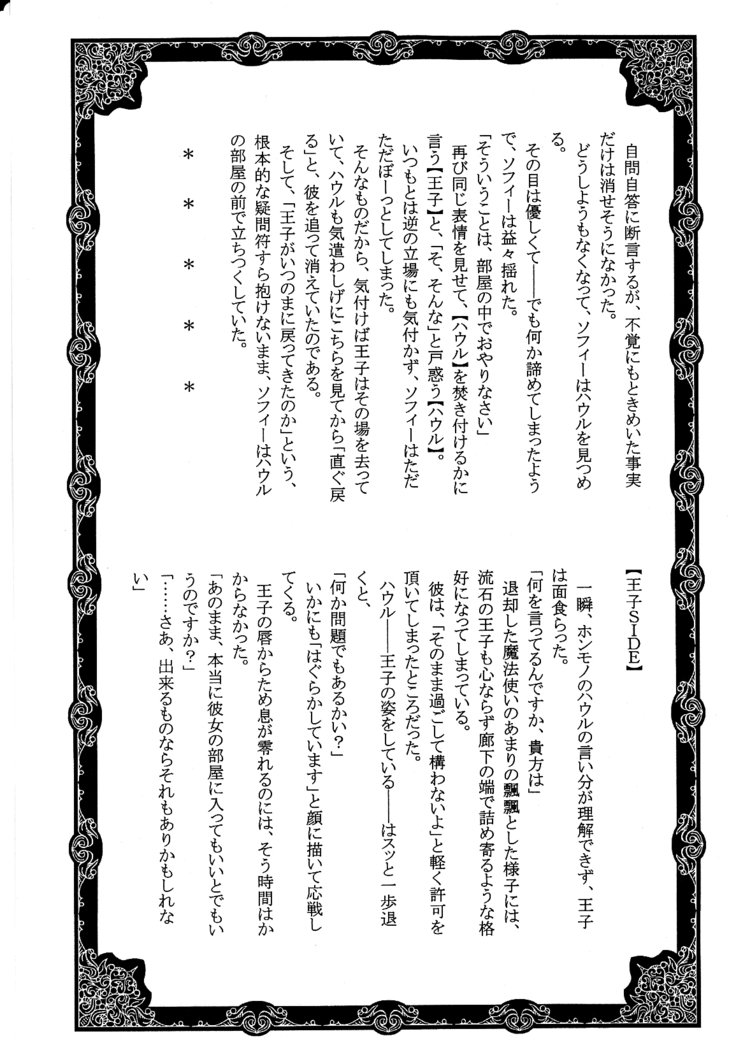 自問自答に断言するが、不覚にもときめいた事実
だけは消せそうになかった。
どうしようもなくなって、ソフィーはハウルを見つめ
る。
その目は優しくて――でも何か諦めてしまったよう
で、ソフィーは益々揺れた。
「そういうことは、部屋の中でおやりなさい」
再び同じ表情を見せて、【ハウル】を焚き付けるかに
言う【王子】と、「そ、そんな」と戸惑う【ハウル】。
いつもとは逆の立場にも気付かず、ソフィーはただ
ただぼーっとしてしまった。
そんなものだから、気付けば王子はその場を去って
いて、ハウルも気遣わしげにこちらを見てから「直ぐ戻
る」と、彼を追って消えていたのである。
そして、「王子がいつのまに戻ってきたのか」という、
根本的な疑問符すら抱けないまま、ソフィーはハウル
の部屋の前で立ちつくしていた。
＊　＊　＊　＊　＊
【王子ＳＩＤＥ】
一瞬、ホンモノのハウルの言い分が理解できず、王子
は面食らった。
「何を言ってるんですか、貴方は」
退却した魔法使いのあまりの飄飄とした様子には、
流石の王子も心ならず廊下の端で詰め寄るような格
好になってしまっている。
彼は、「そのまま過ごして構わないよ」と軽く許可を
頂いてしまったところだった。
ハウル――王子の姿をしている――はスッと一歩退
くと、
「何か問題でもあるかい？」
いかにも「はぐらかしています」と顔に描いて応戦し
てくる。
王子の唇からため息が零れるのには、そう時間はか
からなかった。
「あのまま、本当に彼女の部屋に入ってもいいとでもい
うのですか？」
「……さあ、出来るものならそれもありかもしれな
い」